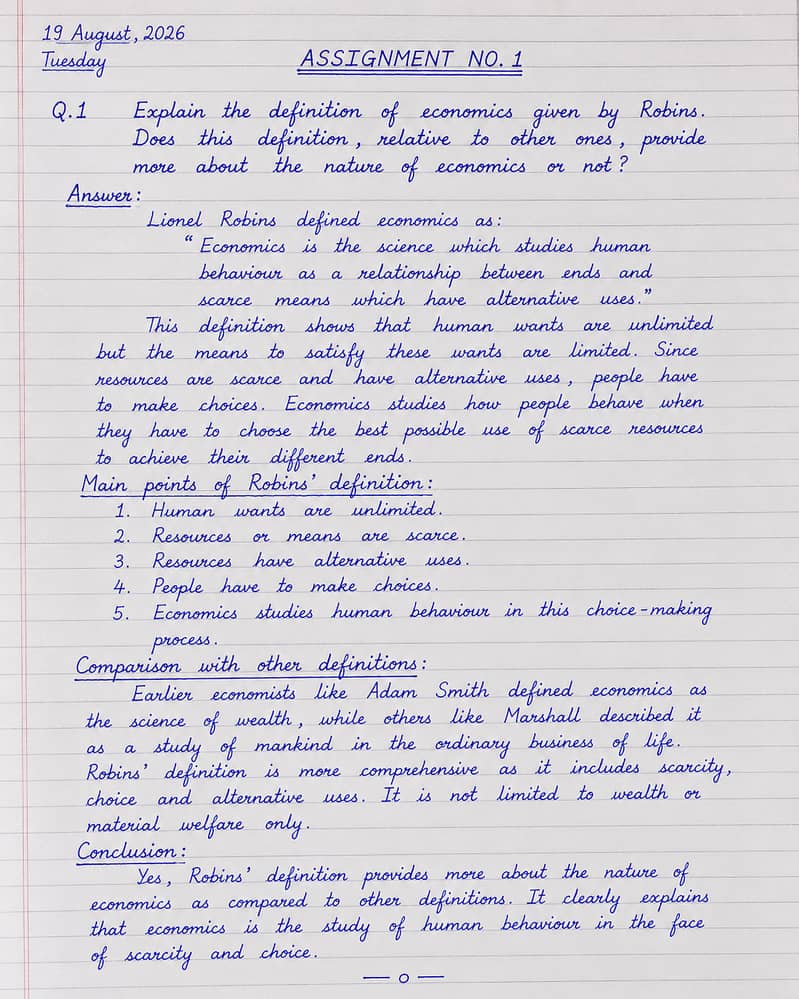 19 August, 2026
Tuesday
ASSIGNMENT NO. 1
Q.1 Explain the definition of economics given by Robins.
Does this definition, relative to other ones, provide
more about the nature of economics or not?
Answer:
Lionel Robins defined economics as:
“Economics is the science which studies human
behaviour as a relationship between ends and
scarce means which have alternative uses.”
This definition shows that human wants are unlimited
but the means to satisfy these wants are limited. Since
resources are scarce and have alternative uses, people have
to make choices. Economics studies how people behave when
they have to choose the best possible use of scarce resources
to achieve their different ends.
Main points of Robins’ definition:
1. Human wants are unlimited.
2. Resources or means are scarce.
3. Resources have alternative uses.
4. People have to make choices.
5. Economics studies human behaviour in this choice-making
process.
Comparison with other definitions:
Earlier economists like Adam Smith defined economics as
the science of wealth, while others like Marshall described it
as a study of mankind in the ordinary business of life.
Robins’ definition is more comprehensive as it includes scarcity,
choice and alternative uses. It is not limited to wealth or
material welfare only.
Conclusion:
Yes, Robins’ definition provides more about the nature of
economics as compared to other definitions. It clearly explains
that economics is the study of human behaviour in the face
of scarcity and choice.